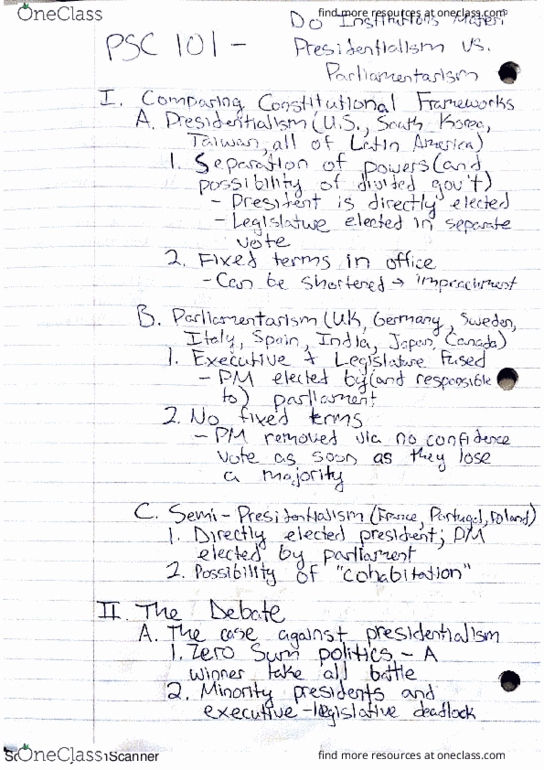 OneClass
find more resources at oneclass.com
Do Institutions Matter?
PSC 101 - Presidentialism vs.
Parliamentarism
I. Comparing Constitutional Frameworks
A. Presidentialism (U.S., South Korea,
Taiwan, all of Latin America)
1. Separation of powers (and
possibility of divided gov't)
- President is directly elected
- Legislature elected in separate
vote
2. Fixed terms in office
- Can be shortened → impeachment
B. Parliamentarism (UK, Germany, Sweden,
Italy, Spain, India, Japan, Canada)
1. Executive + Legislature fused
- PM elected by (and responsible
to) parliament
2. No fixed terms
- PM removed via no confidence
vote as soon as they lose
a majority
C. Semi-Presidentialism (France, Portugal, Poland)
1. Directly elected president; PM
elected by parliament
2. Possibility of "cohabitation"
II. The Debate
A. The case against presidentialism
1. Zero Sum politics - A
winner take all battle
2. Minority presidents and
executive-legislative deadlock
OneClass Scanner
find more resources at oneclass.com